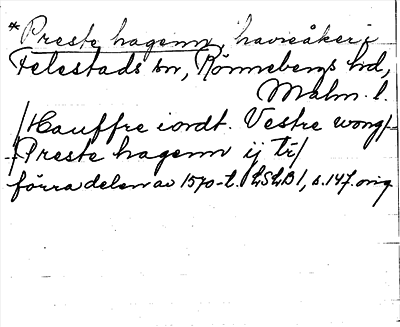 *Preste hagenn, havreåker i
Felestads sn, Rönnebergs hd,
Malm. l.
/Hauffre iordt. Vestre wong/-
/Preste hagenn ij tr/
förra delen av 1570-t. LSLB1, s.147. orig